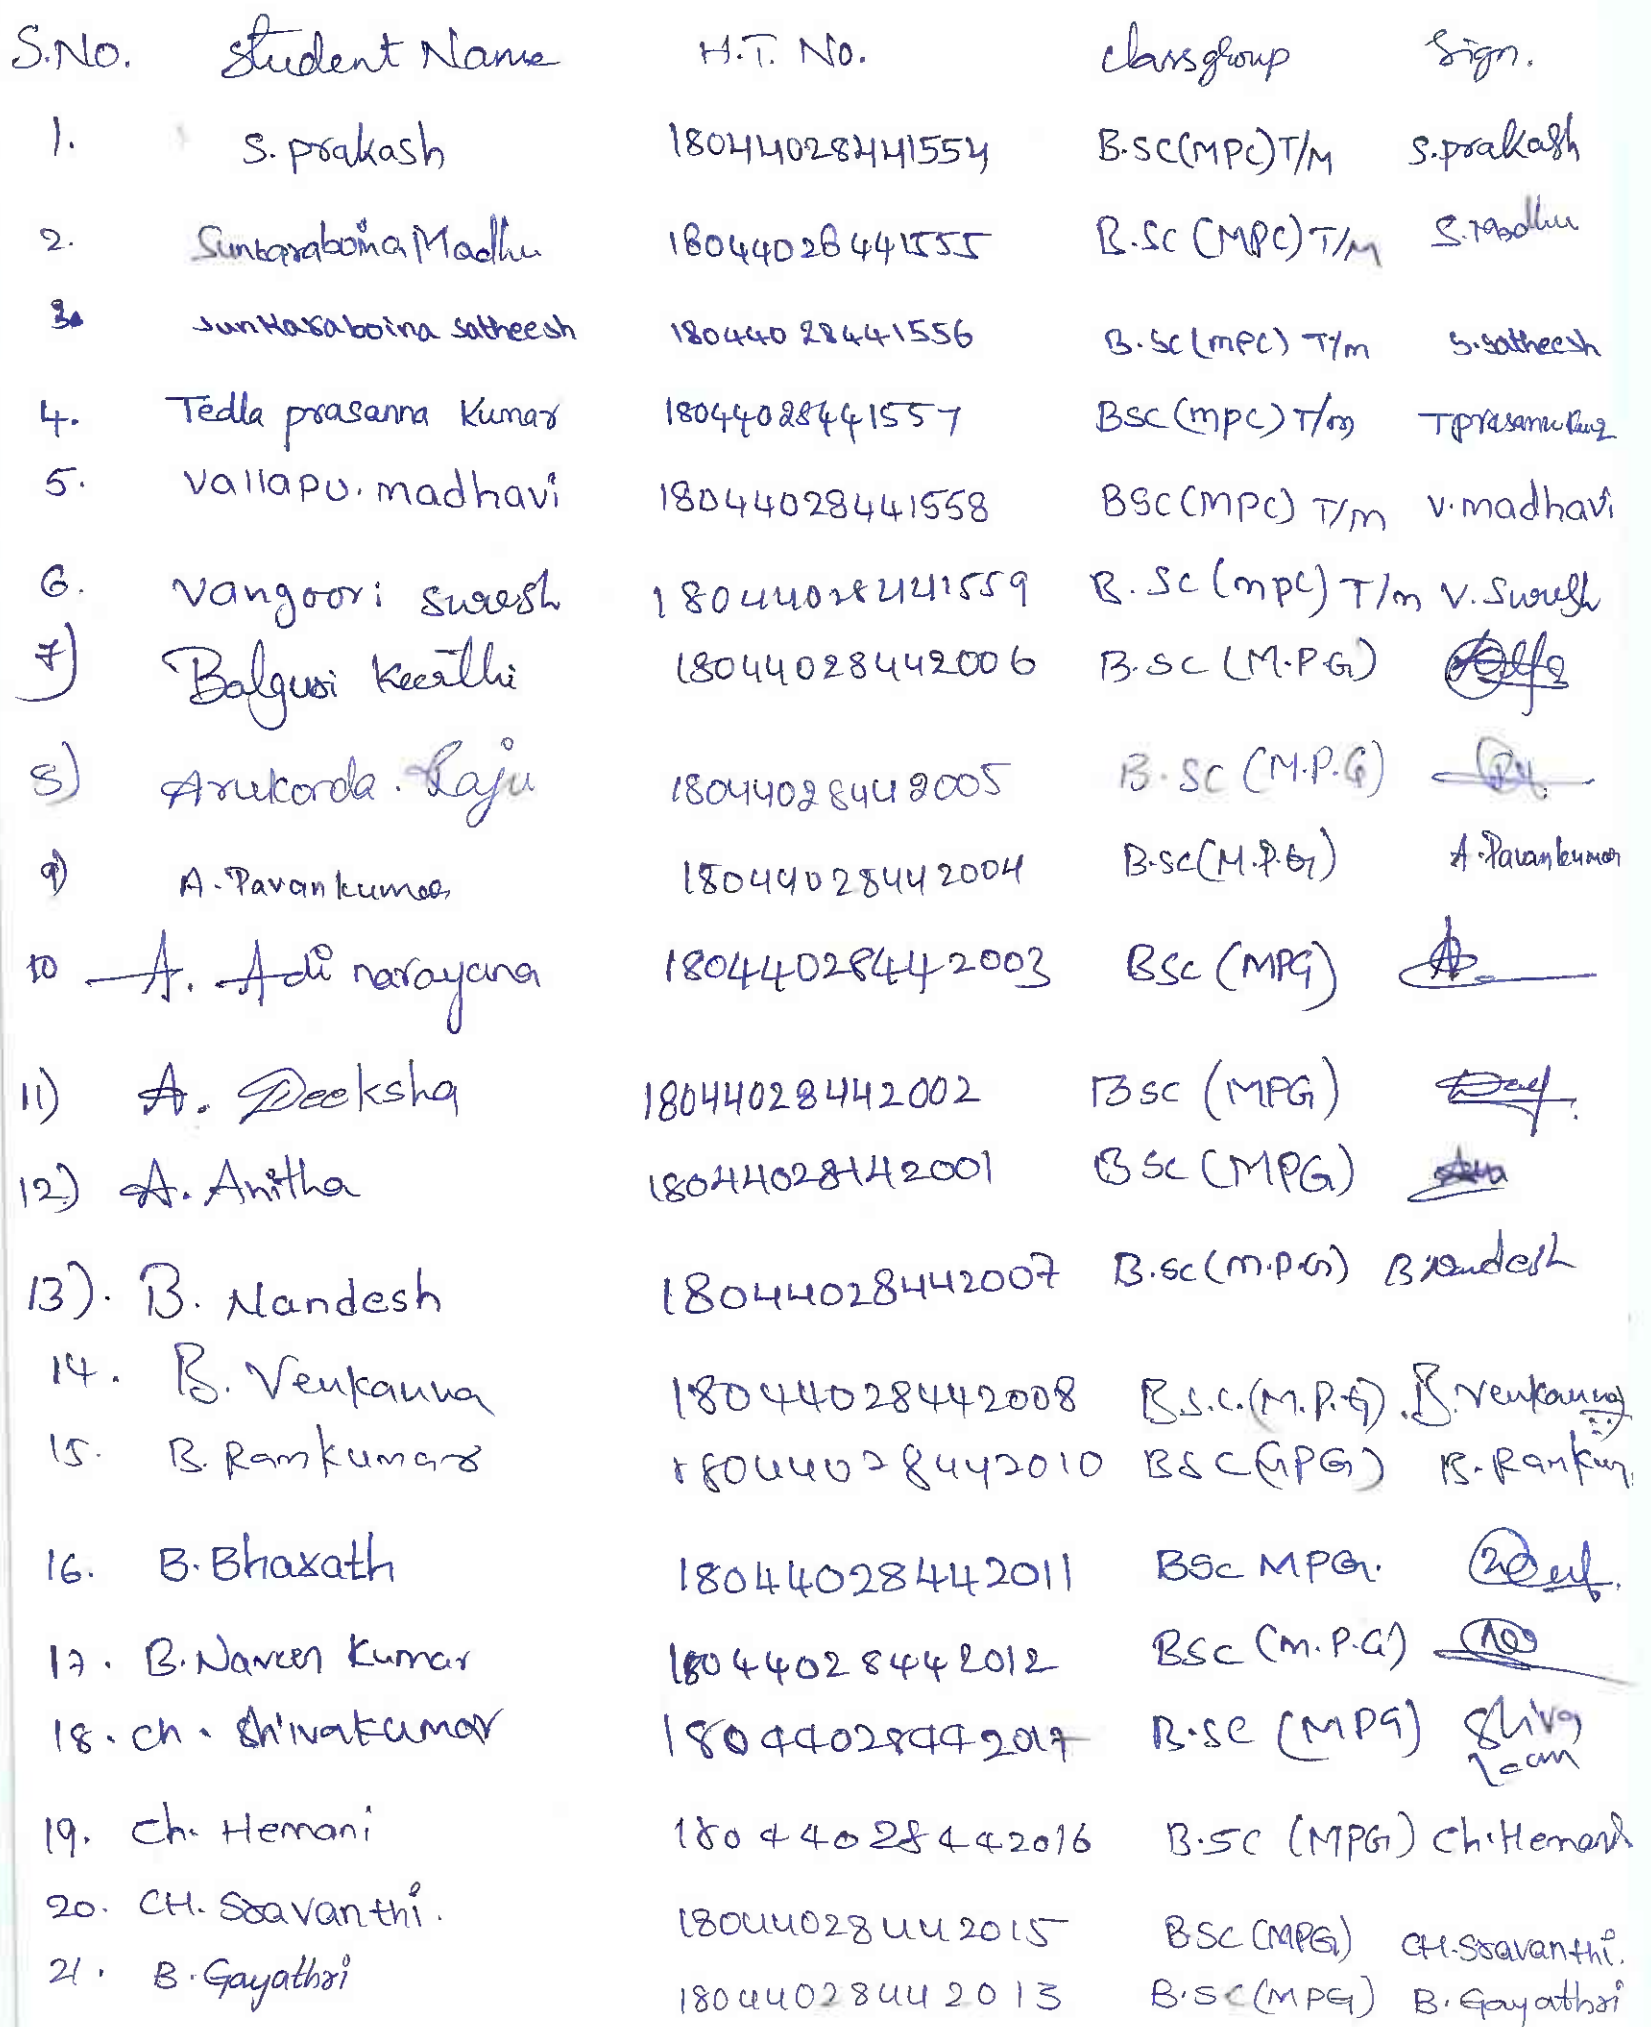 S.No. Student Name H.T. No. classgroup Sign.
1. S. prakash 18044028441554 B.SC(MPC)T/M S.prakash
2. Sunkaraboina Madhu 18044028441555 B.SC (MPC) T/M S.Madhu
3. Sunkaraboina Satheesh 18044028441556 B.SC(MPC) T/m S.Satheesh
4. Tedla prasanna Kumar 18044028441557 BSC (mpc) T/m
5. Vallapu. madhavi 18044028441558 BSC (MPC) T/m V.madhavi
6. Vangoori Suresh 18044028441559 B. SC (mpc) T/m V. Suresh
7) Balguri Keerthi 18044028442006 B.SC (M.P.G)
8) Arukonda. Raju 18044028442005 B.SC (M.P.G)
9) A. Pavan kumar 18044028442004 B.SC (M.P.G) A.Pavankumar
10 A. Adi narayana 18044028442003 BSC (MPG)
11) A. Deeksha 18044028442002 BSC (MPG)
12) A. Anitha 18044028442001 BSC (MPG)
13). B. Nandesh 18044028442007 B.SC (M.P.G) B Nandesh
14. B. Venkanna 18044028442008 B.S.C.(M.P.G). B.Venkanna
15. B. Ramkumar 18044028442010 BSC (GPG)
16. B. Bharath 18044028442011 BSC MPG.
17. B. Naveen Kumar 18044028442012 BSC (M.P.G)
18. ch. Shivakumar 18044028442017 B.SC (MPG) Shiva
19. Ch. Hemani 18044028442016 B.SC (MPG) Ch.Hemani
20. CH. Sravanthi. 18044028442015 BSC (MPG) CH.Sravanthi.
21. B. Gayathri 18044028442013 B.SC (MPG) B. Gayathri